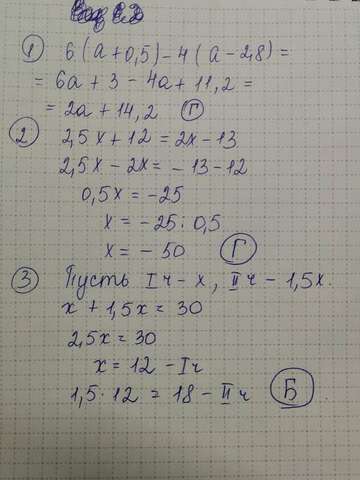 1 6(a+0,5)-4(a-2,8)=
=6a+3-4a+11,2=
=2a+14,2 Г
2 2,5x+12=2x-13
2,5x-2x=-13-12
0,5x=-25
x=-25:0,5
x=-50 Г
3 Пусть I ч - x, II ч - 1,5x.
x+1,5x=30
2,5x=30
x=12 - I ч
1,5·12=18 - II ч Б